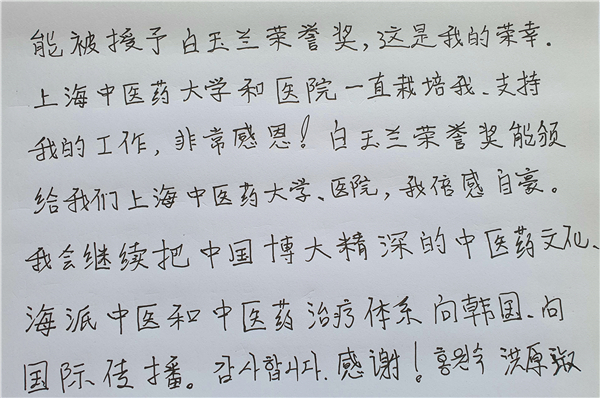 能被授予白玉兰荣誉奖,这是我的荣幸.
上海中医药大学和医院一直栽培我、支持
我的工作,非常感恩!白玉兰荣誉奖能颁
给我们上海中医药大学、医院,我倍感自豪。
我会继续把中国博大精深的中医药文化、
海派中医和中医药治疗体系向韩国、向
国际传播。감사합니다.感谢!홍원숙 洪原淑